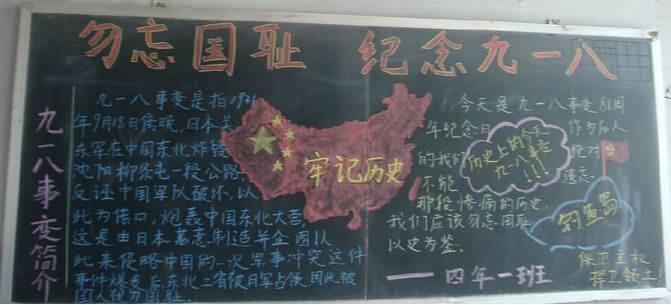 勿忘国耻 纪念九一八
九一八事变简介
九一八事变是指1931
年9月18日傍晚,日本关
东军在中国东北炸毁
沈阳柳条屯一段公路
反诬中国军队破坏,以
此为借口,炮轰中国东北大营,
这是由日本蓄意制造并企图以
此来侵略中国的一次军事冲突这件
事件爆发后东北三省被日军占领因此被
国人视为国耻。
牢记历史
今天是九一八事变81周
年纪念日 作为后人
的我们 绝对
不能 遗忘
那段惨痛的历史,
我们应该勿忘国耻
以史为鉴。
历史上的今天
九一八事变
!!!
钓鱼岛
保卫主权
捍卫领土
——四年一班